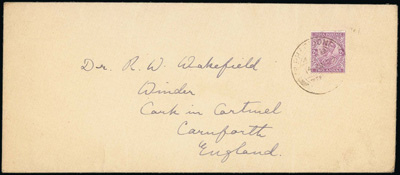 Dr. R. W. Wakefield
Winder
Cark in Cartmel
Carnforth
England.